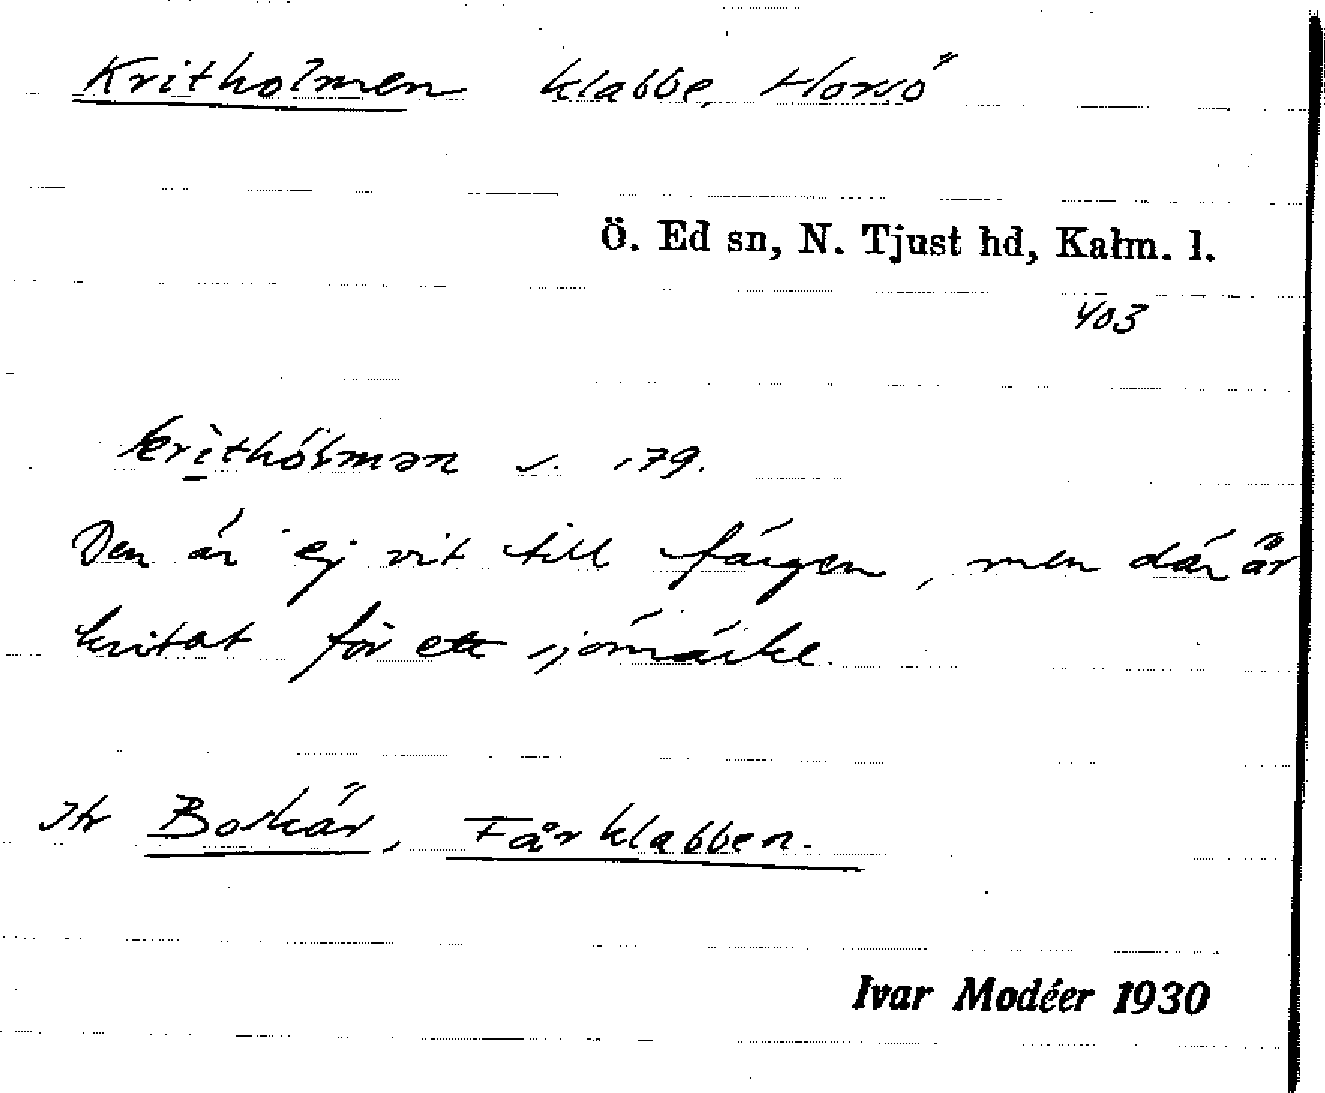 Kritholmen klabbe, Horsö
Ö. Ed sn, N. Tjust hd, Kalm. l.
403
krithólmən s. 179.
Den är ej vit till färgen, men där är
kritat för ett sjömärke.
Str Borkär, Fårklabben.
Ivar Modéer 1930